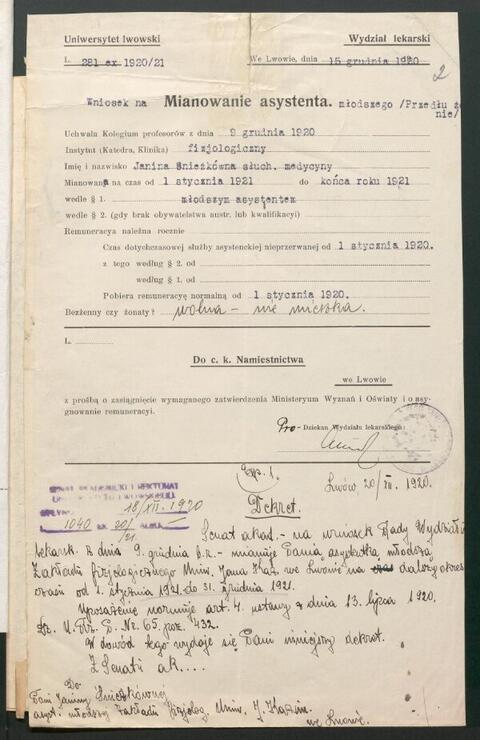 Uniwersytet lwowski
Wydział lekarski
L. 281 ex 1920/21
We Lwowie, dnia 15 grudnia 1920
2
Wniosek na Mianowanie asystenta. młodszego /Przedłuże
nie/
Uchwała Kolegium profesorów z dnia 9 grudnia 1920
Instytut (Katedra, Klinika) fizjologiczny
Imię i nazwisko Janina Śnieżkówna słuch. medycyny
Mianowana na czas od 1 stycznia 1921 do końca roku 1921
wedle § 1. młodszym asystentem
wedle § 2. (gdy brak obywatelstwa austr. lub kwalifikacyi)
Remuneracya należna rocznie
Czas dotychczasowej służby asystenckiej nieprzerwanej od 1 stycznia 1920.
z tego według § 2. od
według § 1. od
Pobiera remuneracyę normalną od 1 stycznia 1920.
Bezżenny czy żonaty? wolna – nie mieszka.
L.
Do c. k. Namiestnictwa
we Lwowie
z prośbą o zasiągnięcie wymaganego zatwierdzenia Ministeryum Wyznań i Oświaty i o asy-
gnowanie remuneracyi.
Pro-Dziekan Wydziału lekarskiego:
Exp. 1.
Lwów, 20/XII. 1920.
SENAT AKADEMICKI I REKTORAT
18/XII. 1920
1040 EX 20/21
Dekret.
Senat akad. – na wniosek Rady Wydziału
lekarsk. z dnia 9. grudnia b.r. – mianuje Panią asystentką młodszą
Zakładu fizjologicznego Uniw. Jana Kaz. we Lwowie na dalszy okres
czasu od 1. stycznia 1921. do 31. grudnia 1921.
Uposażenie normuje art. 4. ustawy z dnia 13. lipca 1920.
Dz. U. Rz. P. Nr. 65. poz. 432.
W dowód tego wydaje się Pani niniejszy dekret.
Z Senatu ak....
Do
Pani Janiny Śnieżkównej
asyst. młodszej Zakładu fizjolog. Uniw. J. Kazim.
we Lwowie.